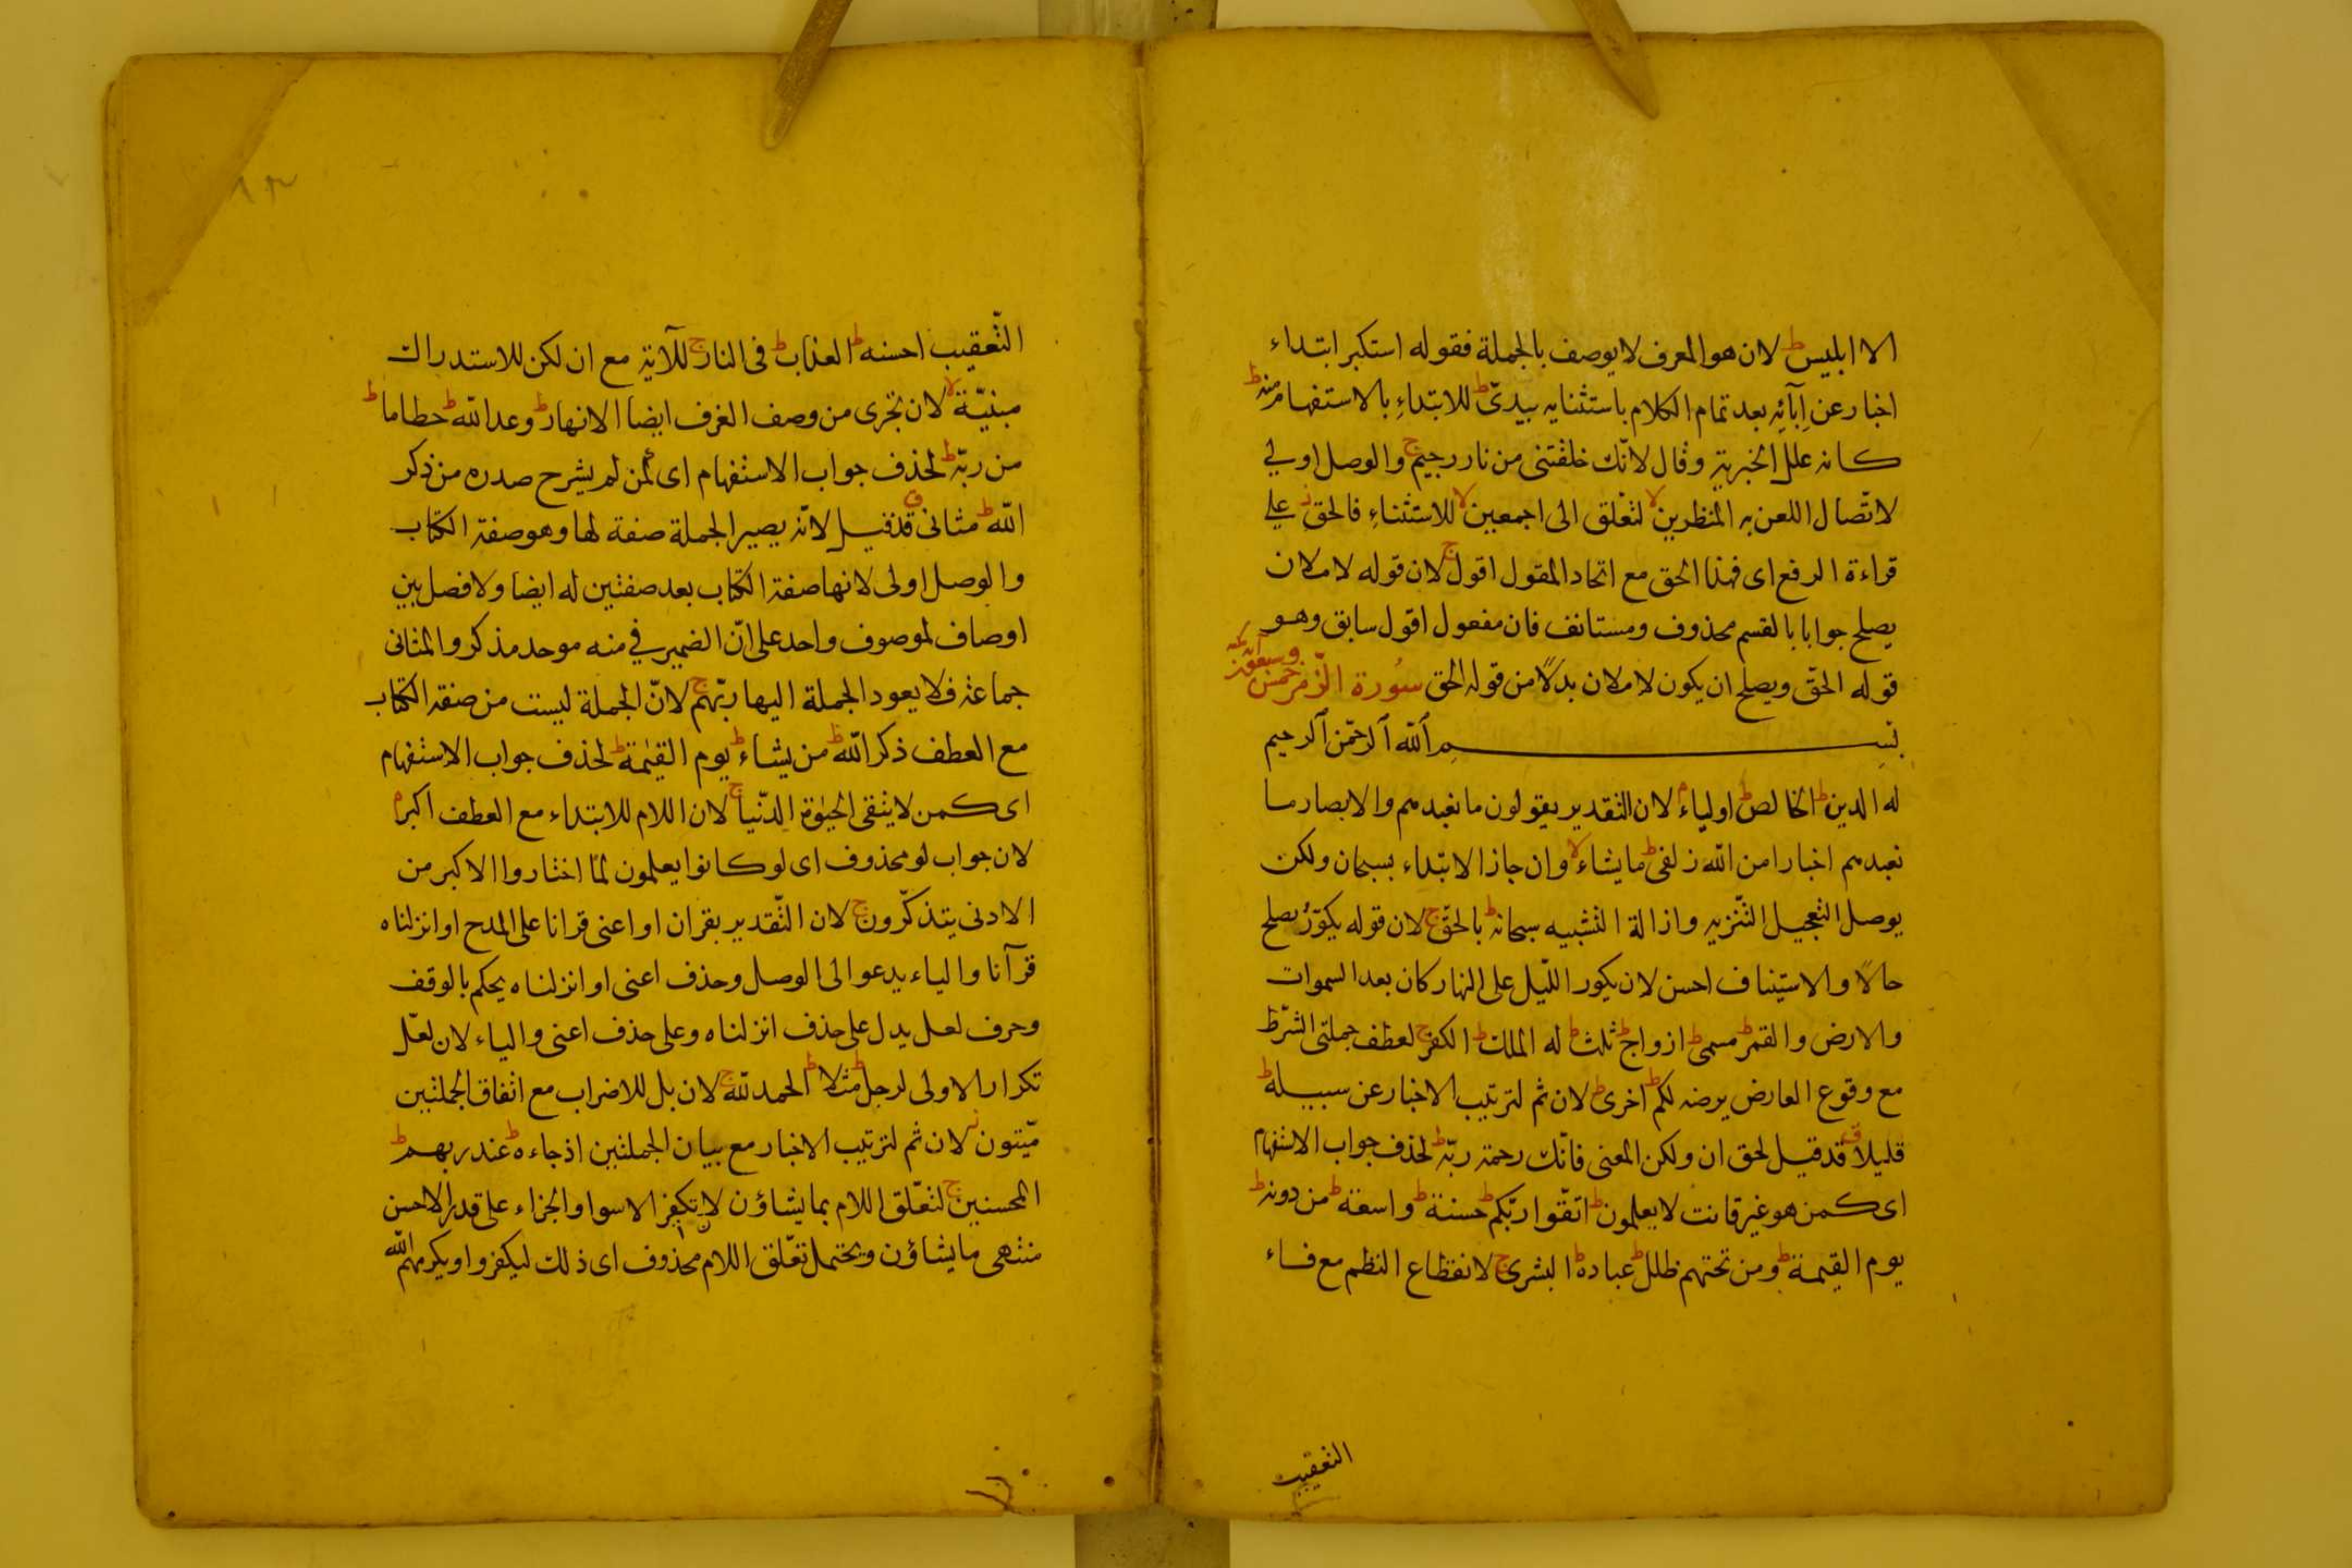 الا ابليس ط لان هو المعرف لا يوصف بالجملة فقوله استكبر ابتداء
اخبار عن اِبآئِه بعد تمام الكلام باستثنايه بيدىّ ط للابتداءِ بالاستفهام منه ط
كانه علل الخبرية وقال لانّك خلقتنى من نار رجيم ج والوصل اولي
لاتّصال اللعن به المنظرين لا لتعلق الى اجمعين لا للاستثناءِ فالحق ز علي
قراءة الرفع اى فهذا الحق مع اتحاد المقول اقول ج لان قوله لاملان
يصلح جوابا بالقسم محذوف ومستانف فان مفعول اقول سابق وهو
قوله الحقّ ويصلح ان يكون لاملان بدلًا من قوله الحق سُورة الزّمر خمس
وسبعون آية مكية
بسم الله الرحمن الرحيم
له الدين ط الخالص ط اولياء م لان التقدير يقولون ما نعبدهم والابصار ما
نعبدهم اخبارا من الله زلفى ط ما يشاء لا وان جاز الابتداء بسبحان ولكن
يوصل التعجيل التّنزيه وازالة التشبيه سبحانه ط بالحقّ ج لان قوله يكوّر يصلح
حالًا والاستيناف احسن لان يكور اللّيل على النهار كان بعد السموات
والارض والقمر ط مسمى ط ازواج ط ثلث ط له الملك ط الكفر ج لعطف جملتى الشرط
مع وقوع العارض يرضه لكم ط اخرى ط لان ثم لترتيب الاخبار عن سبيله ط
قليلا ق قد قيل لحق ان ولكن المعنى فانّك رحمة ربّه ط لحذف جواب الاستفهام
اى كمن هو غير قانت لا يعلمون ط اتقّوا ربّكم ط حسنة ط واسعة ط من دونه ط
يوم القيمة ط ومن تحتهم ظلل ط عباده ط البشرى ج لانقطاع النظم مع فاء
التعقيب
التّعقيب احسنه ط العذاب ط فى النار ج للآية مع ان لكن للاستدراك
مبنيّة لا لان تجرى من وصف الغرف ايضا الانهار ط وعد الله ط حطاما ط
من ربّه ط لحذف جواب الاستفهام اى كمن لم يشرح صدره من ذكر
الله ط مثانى ق قد قيل لانّه يصير الجملة صفة لها وهو صفة الكتاب
والوصل اولى لانها صفة الكتاب بعد صفتين له ايضا ولا فصل بين
اوصاف لموصوف واحد على انّ الضمير في منه موحد مذكر والمثانى
جماعة فلا يعود الجملة اليها ربّهم ج لانّ الجملة ليست من صفة الكتاب
مع العطف ذكر الله ط من يشاء ط يوم القيٰمة ط لحذف جواب الاستفهام
اى كمن لا يتقى الحيوٰة الدّنيا ج لان اللام للابتداء مع العطف اكبر م
لان جواب لو محذوف اى لو كانوا يعلمون لما اختاروا الاكبر من
الادنى يتذكّرون ج لان التّقدير بقران او اعنى قرانا على المدح او انزلناه
قرآنا والياء يدعو الى الوصل وحذف اعنى او انزلناه يحكم بالوقف
وحرف لعل يدل على حذف انزلناه وعلى حذف اعنى والياء لان لعلّ
تكرار الاولى لرجل ط مثلا ط الحمد للّه ج لان بل للاضراب مع اتفاق الجملتين
ميّتون ز لان ثم لترتيب الاخبار مع بيان الجملتين اذ جاءه ط عند ربهم ط
المحسنين ج لتعلّق اللام بما يشاؤن لان تكفر الاسوا والجزاء على قدر الاحسن
منتهى ما يشاؤن ويحتمل تعّلق اللام محذوف اى ذلك ليكفروا ويكرمهم الله